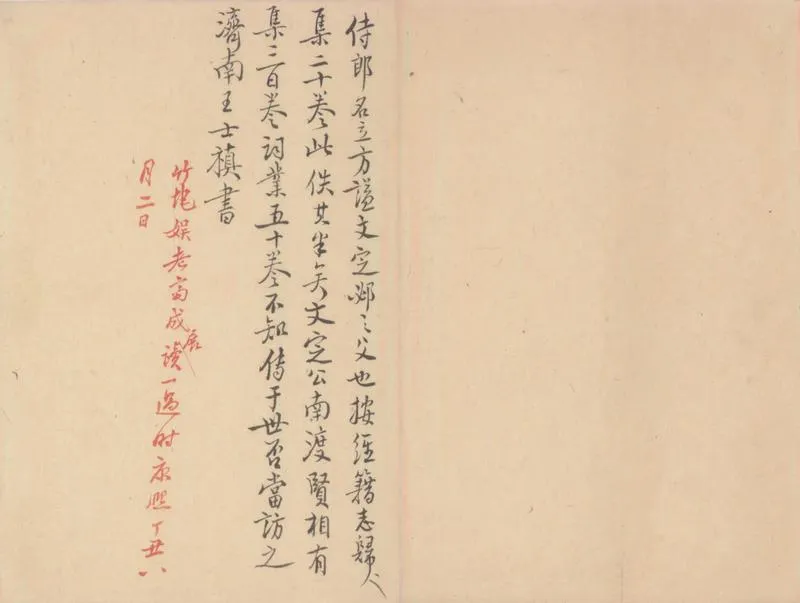 侍郎名立方謚文定邲之父也按經籍志歸愚
集二十卷此佚其半矣文定公南渡賢相有
集二百卷詞業五十卷不知傳于世否當訪之
濟南王士禛書
竹垞娛老齋成展讀一過時康熙丁丑八
月二日